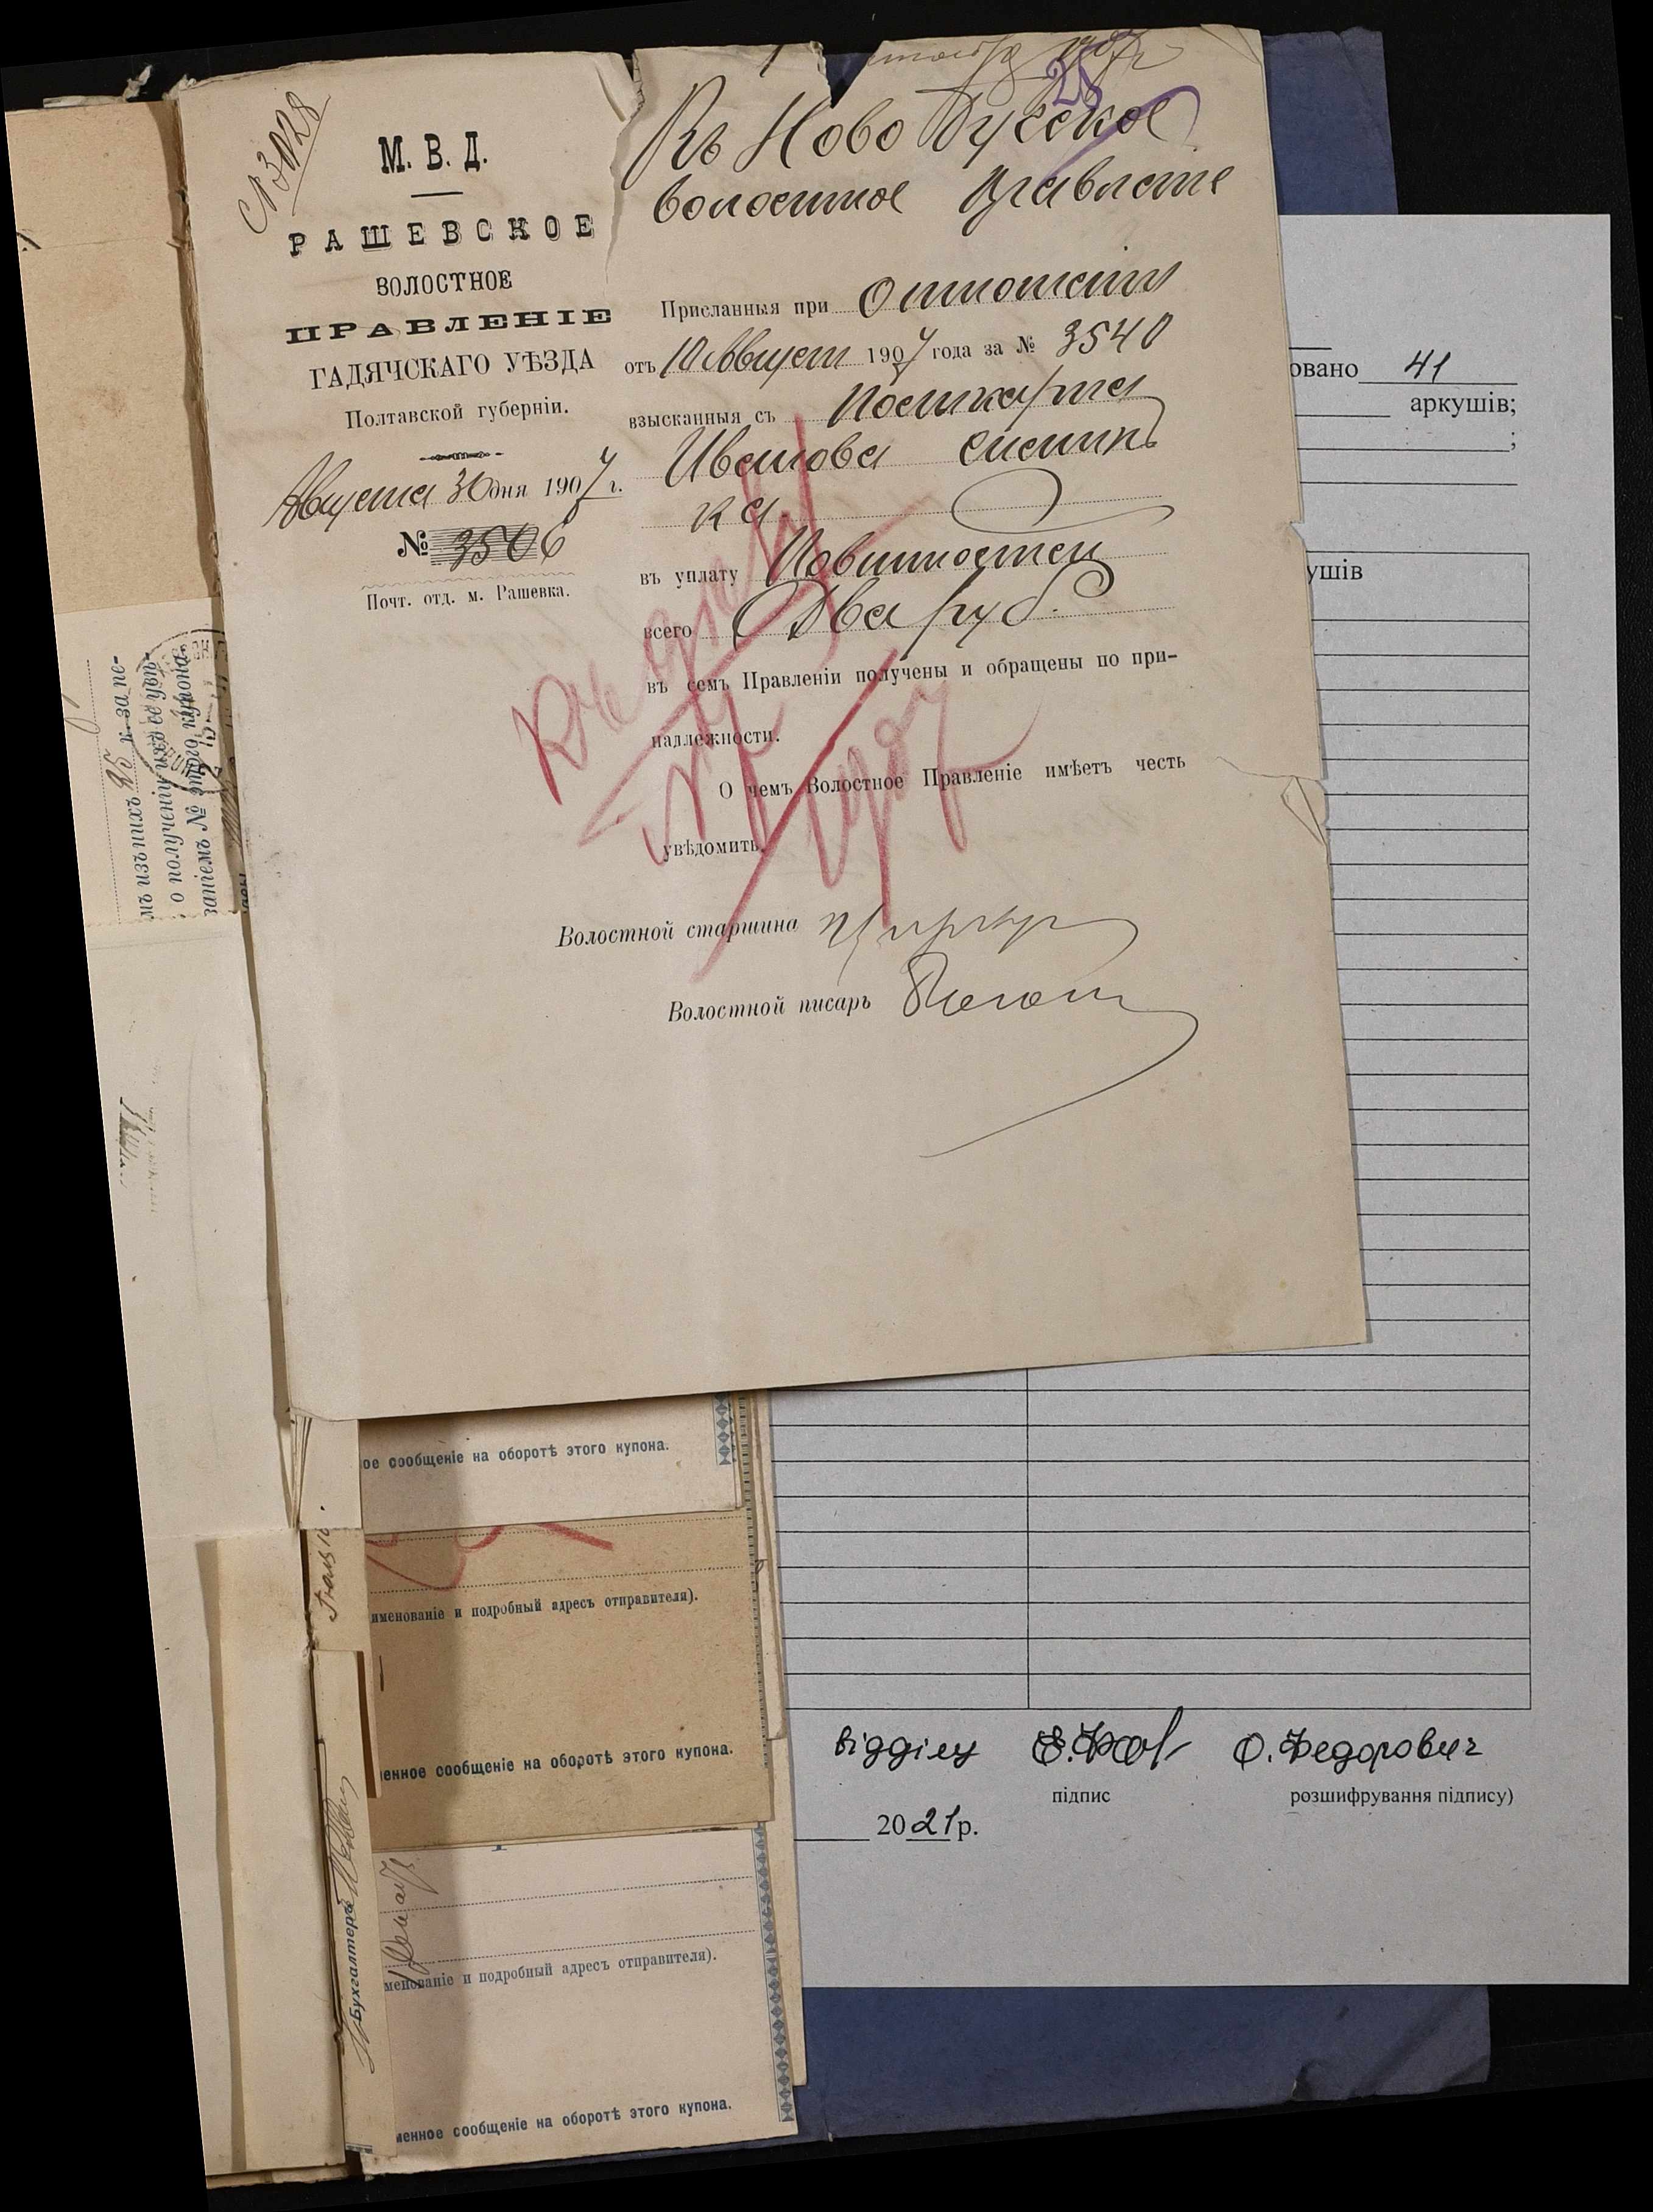 № 3028
М. В. Д.
РАШЕВСКОЕ
ВОЛОСТНОЕ
ПРАВЛЕНІЕ
ГАДЯЧСКАГО УѢЗДА
Полтавской губерніи.
Августа 30 дня 1907 г.
№ 3506
Почт. отд. м. Рашевка.
28
Въ Ново
волостное Правленіе
Присланныя при Отношеніи
отъ 10 Август 1907 года за № 3540
взысканныя съ
Иванова
ка
въ уплату Повинностей
всего Два руб.
въ семъ Правленіи получены и обращены по при-
надлежности.
О чемъ Волостное Правленіе имѣетъ честь
увѣдомить.
Волостной старшина
Волостной писарь
къ дѣлу
1907
мъ изъ нихъ 35 к. за пе-
о полученіи
заніемъ № этого купона.
ое сообщеніе на оборотѣ этого купона.
именованіе и подробный адресъ отправителя).
менное сообщеніе на оборотѣ этого купона.
менованіе и подробный адресъ отправителя).
менное сообщеніе на оборотѣ этого купона.
Бухгалтеръ
овано 41
аркушів;
;
ушів
відділу О. Федорович
підпис розшифрування підпису)
2021 р.